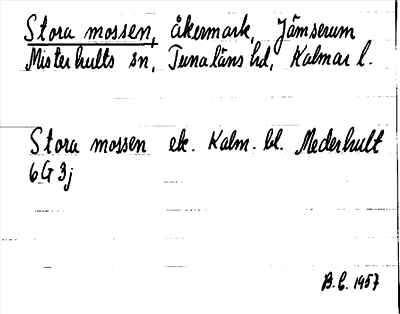 Stora mossen, åkermark, Jämserum
Misterhults sn, Tunaläns hd, Kalmar l.
Stora mossen ek. Kalm. bl. Mederhult
6G 3j
B.C. 1957